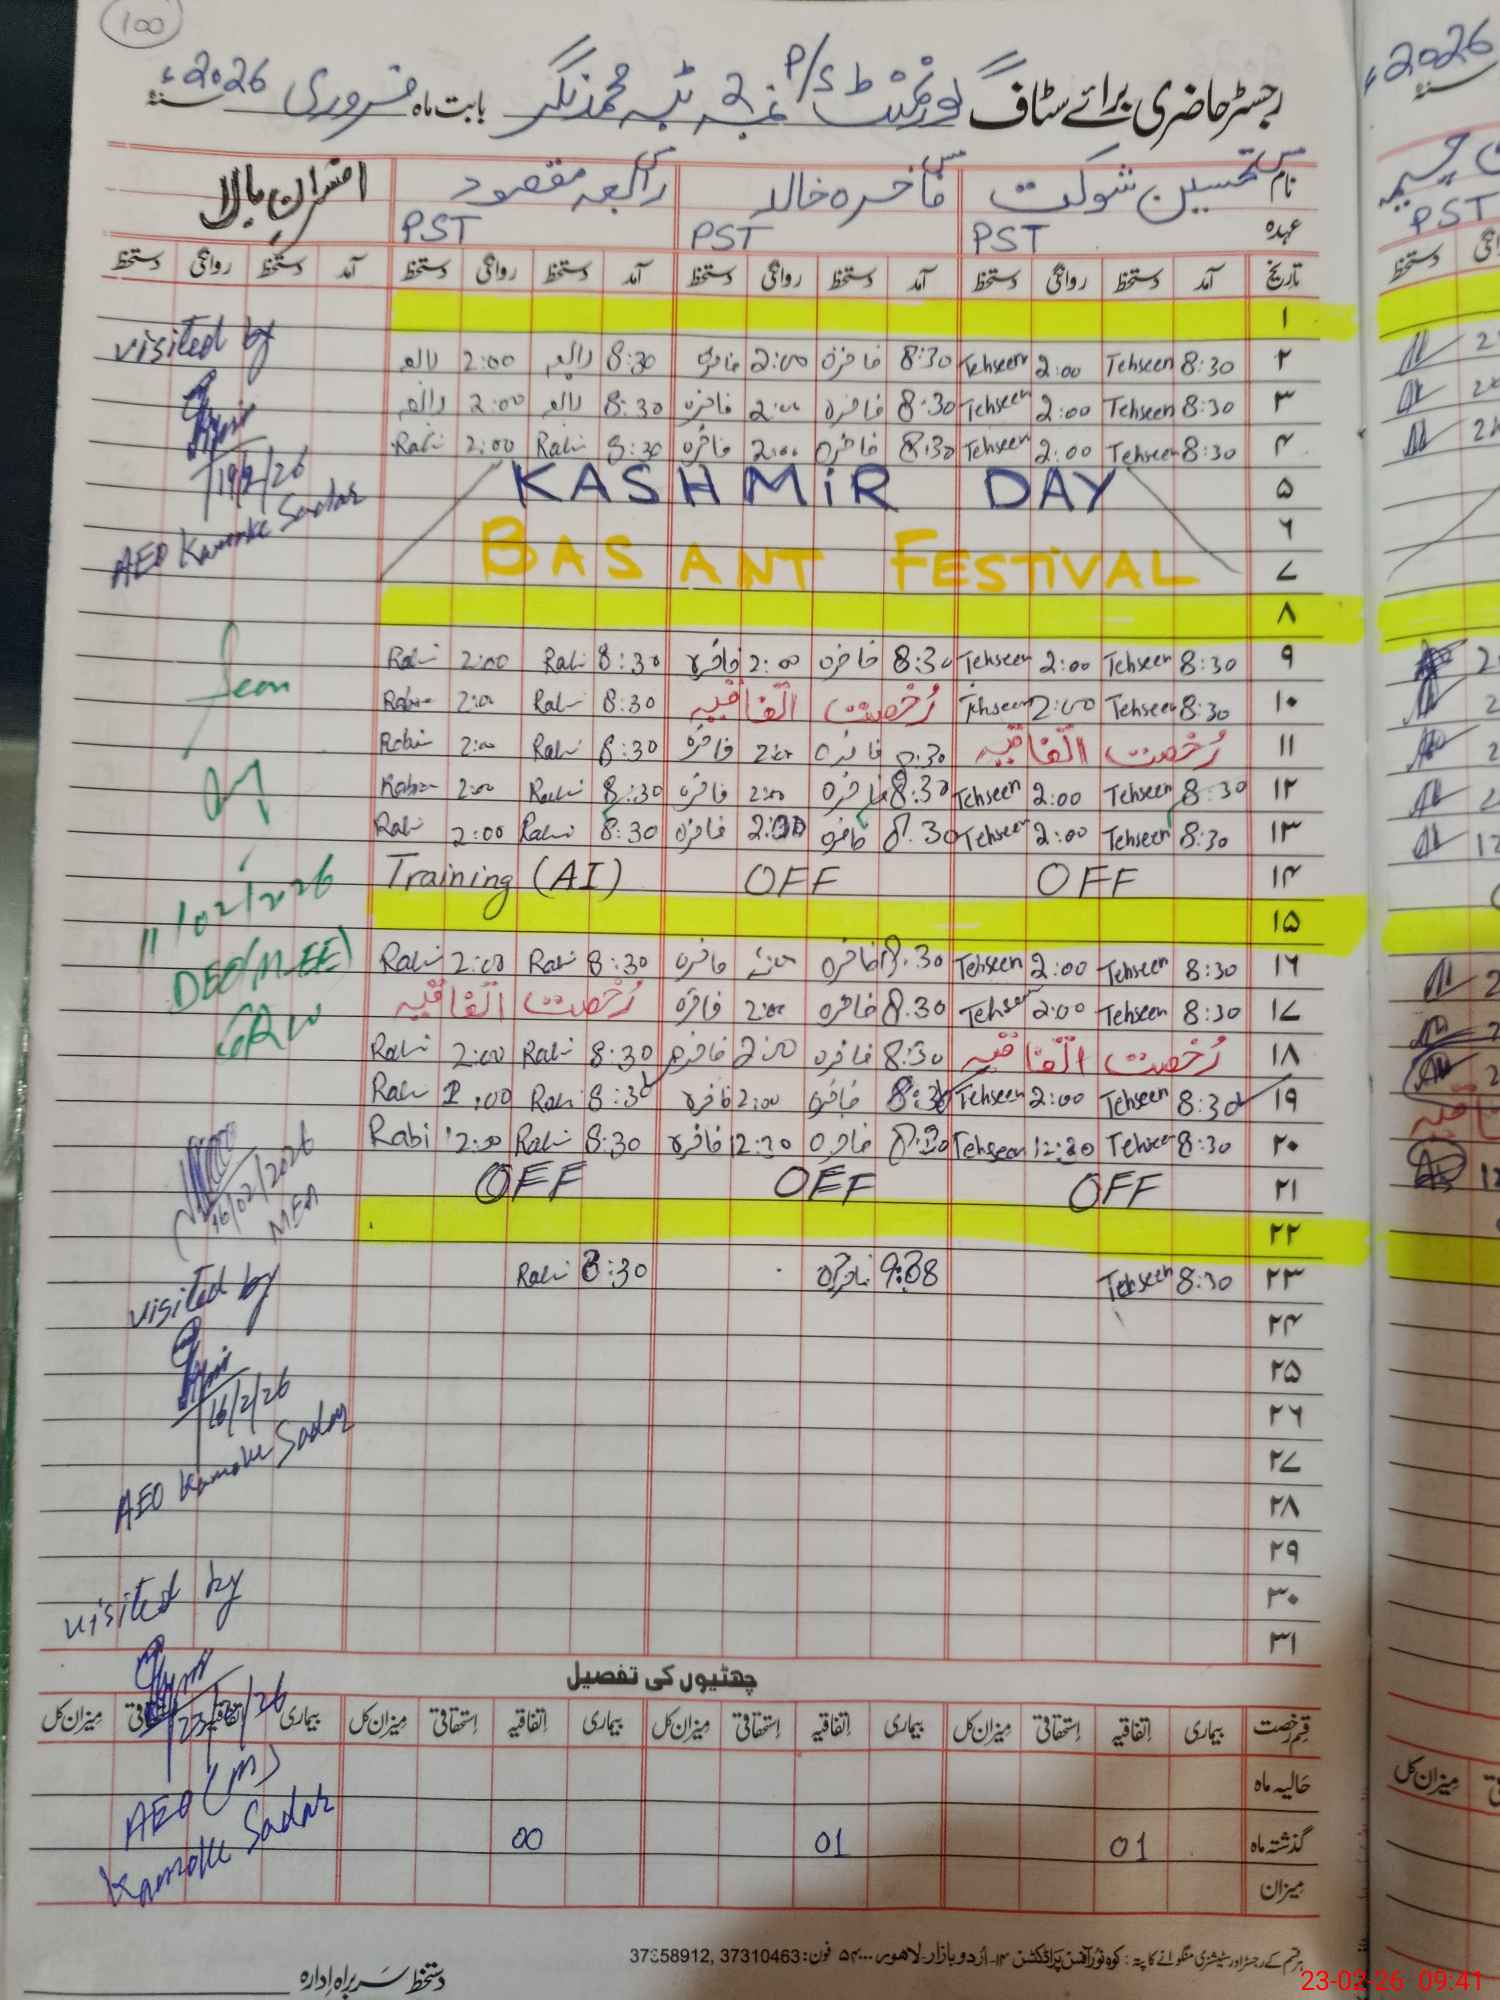 100
رجسٹر حاضری برائے سٹاف گورنمنٹ P/S نمبر 2 ٹبہ محمد نگر بابت ماہ فروری 2026ء
نام مس تحسین شوکت مس فاخرہ خالد مس رابعہ مقصود افسرانِ بالا
عہدہ PST PST PST
تاریخ آمد دستخط روانگی دستخط آمد دستخط روانگی دستخط آمد دستخط روانگی دستخط آمد دستخط روانگی دستخط
۱
۲ 8:30 Tehseen 2:00 Tehseen 8:30 فاخرہ 2:00 فاخرہ 8:30 رابعہ 2:00 رابعہ
۳ 8:30 Tehseen 2:00 Tehseen 8:30 فاخرہ 2:00 فاخرہ 8:30 رابعہ 2:00 رابعہ
۴ 8:30 Tehseen 2:00 Tehseen 8:30 فاخرہ 2:00 فاخرہ 8:30 Rabi 2:00 Rabi
۵ KASHMIR DAY
۶
۷ BASANT FESTIVAL
۸
۹ 8:30 Tehseen 2:00 Tehseen 8:30 فاخرہ 2:00 فاخرہ 8:30 Rabi 2:00 Rabi
۱۰ 8:30 Tehseen 2:00 Tehseen رُخصت اتفاقیہ 8:30 Rabi 2:00 Rabi
۱۱ رُخصت اتفاقیہ 8:30 فاخرہ 2:00 فاخرہ 8:30 Rabi 2:00 Rabi
۱۲ 8:30 Tehseen 2:00 Tehseen 8:30 فاخرہ 2:00 فاخرہ 8:30 Rabi 2:00 Rabi
۱۳ 8:30 Tehseen 2:00 Tehseen 8:30 فاخرہ 2:00 فاخرہ 8:30 Rabi 2:00 Rabi
۱۴ OFF OFF Training (AI)
۱۵
۱۶ 8:30 Tehseen 2:00 Tehseen 8:30 فاخرہ 2:00 فاخرہ 8:30 Rabi 2:00 Rabi
۱۷ 8:30 Tehseen 2:00 Tehseen 8:30 فاخرہ 2:00 فاخرہ رُخصت اتفاقیہ
۱۸ رُخصت اتفاقیہ 8:30 فاخرہ 2:00 فاخرہ 8:30 Rabi 2:00 Rabi
۱۹ 8:30 Tehseen 2:00 Tehseen 8:30 فاخرہ 2:00 فاخرہ 8:30 Rabi :00 Rabi
۲۰ 8:30 Tehseen 12:30 Tehseen 8:30 فاخرہ 12:30 فاخرہ 8:30 Rabi 12:30 Rabi
۲۱ OFF OFF OFF
۲۲
۲۳ 8:30 Tehseen فاخرہ 8:30 Rabi
۲۴
۲۵
۲۶
۲۷
۲۸
۲۹
۳۰
۳۱
visited by
19/2/26
AEO Kamoke Sadar
Seen
11/02/2026
DEO(M-EE)
GRW
16/02/2026
MEA
visited by
16/2/26
AEO Kamoke Sadar
visited by
23/2/26
AEO (M)
Kamoke Sadar
چھٹیوں کی تفصیل
قسم رخصت بیماری اتفاقیہ استحقاقی میزان کل بیماری اتفاقیہ استحقاقی میزان کل بیماری اتفاقیہ استحقاقی میزان کل بیماری اتفاقیہ استحقاقی میزان کل
حالیہ ماہ
گذشتہ ماہ 01 01 00
میزان
ہر قسم کے رجسٹر اور سٹیشنری منگوانے کا پتہ: کوہ نور آفس پراڈکشن ۱۴-اُردو بازار-لاہور۔ ۵۴۰۰۰ فون: 37310463
دستخط سربراہ ادارہ
2026ء
PST
دستخط
میزان کل
23-02-26 09:41